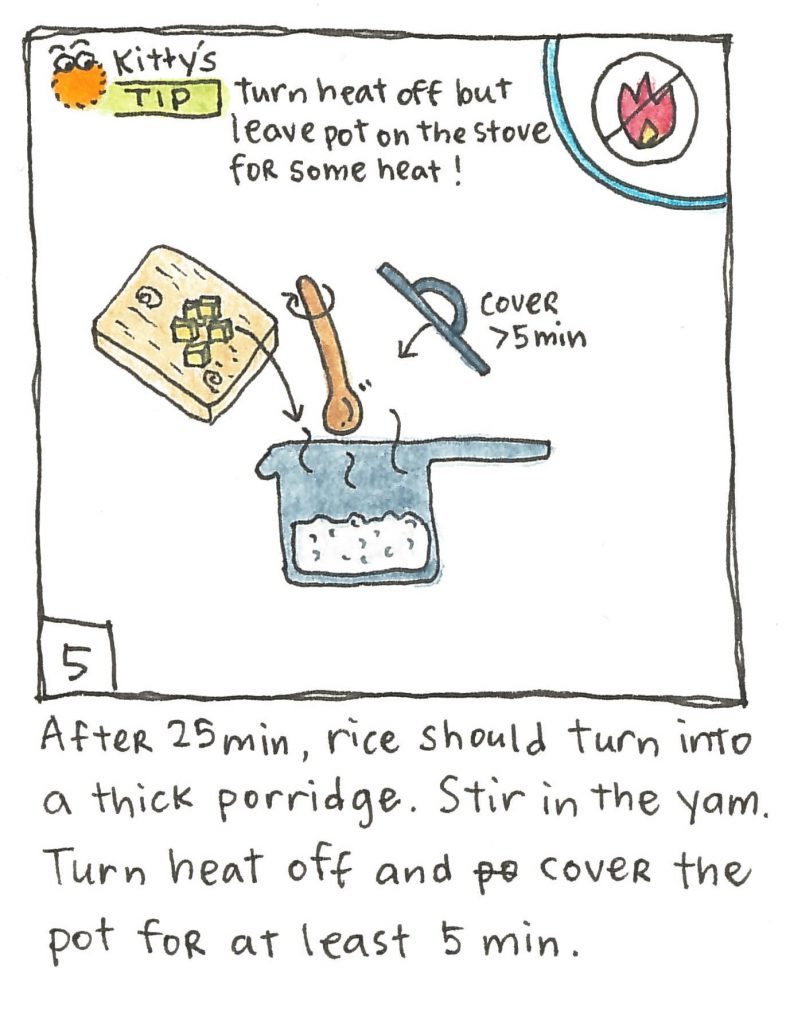 Kitty's
TIP
turn heat off but
leave pot on the stove
for some heat!
cover
>5min
5
After 25min, rice should turn into
a thick porridge. Stir in the yam.
Turn heat off and po cover the
pot for at least 5 min.